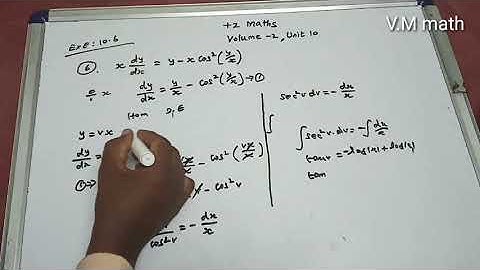 V.M math
+2 Maths
Volume -2, Unit 10
Exe: 10.6
6. x dy/dx = y - x cos²(y/x)
÷ x dy/dx = y/x - cos²(y/x) → ①
Hom D.E
y = vx
dy/dx =
① ⇒ vx/x - cos²(vx/x)
- cos²v
cos²v = - dx/x
sec²v dv = - dx/x
∫sec²v dv = -∫dx/x
tan v = -log|x| + log|c|
tan